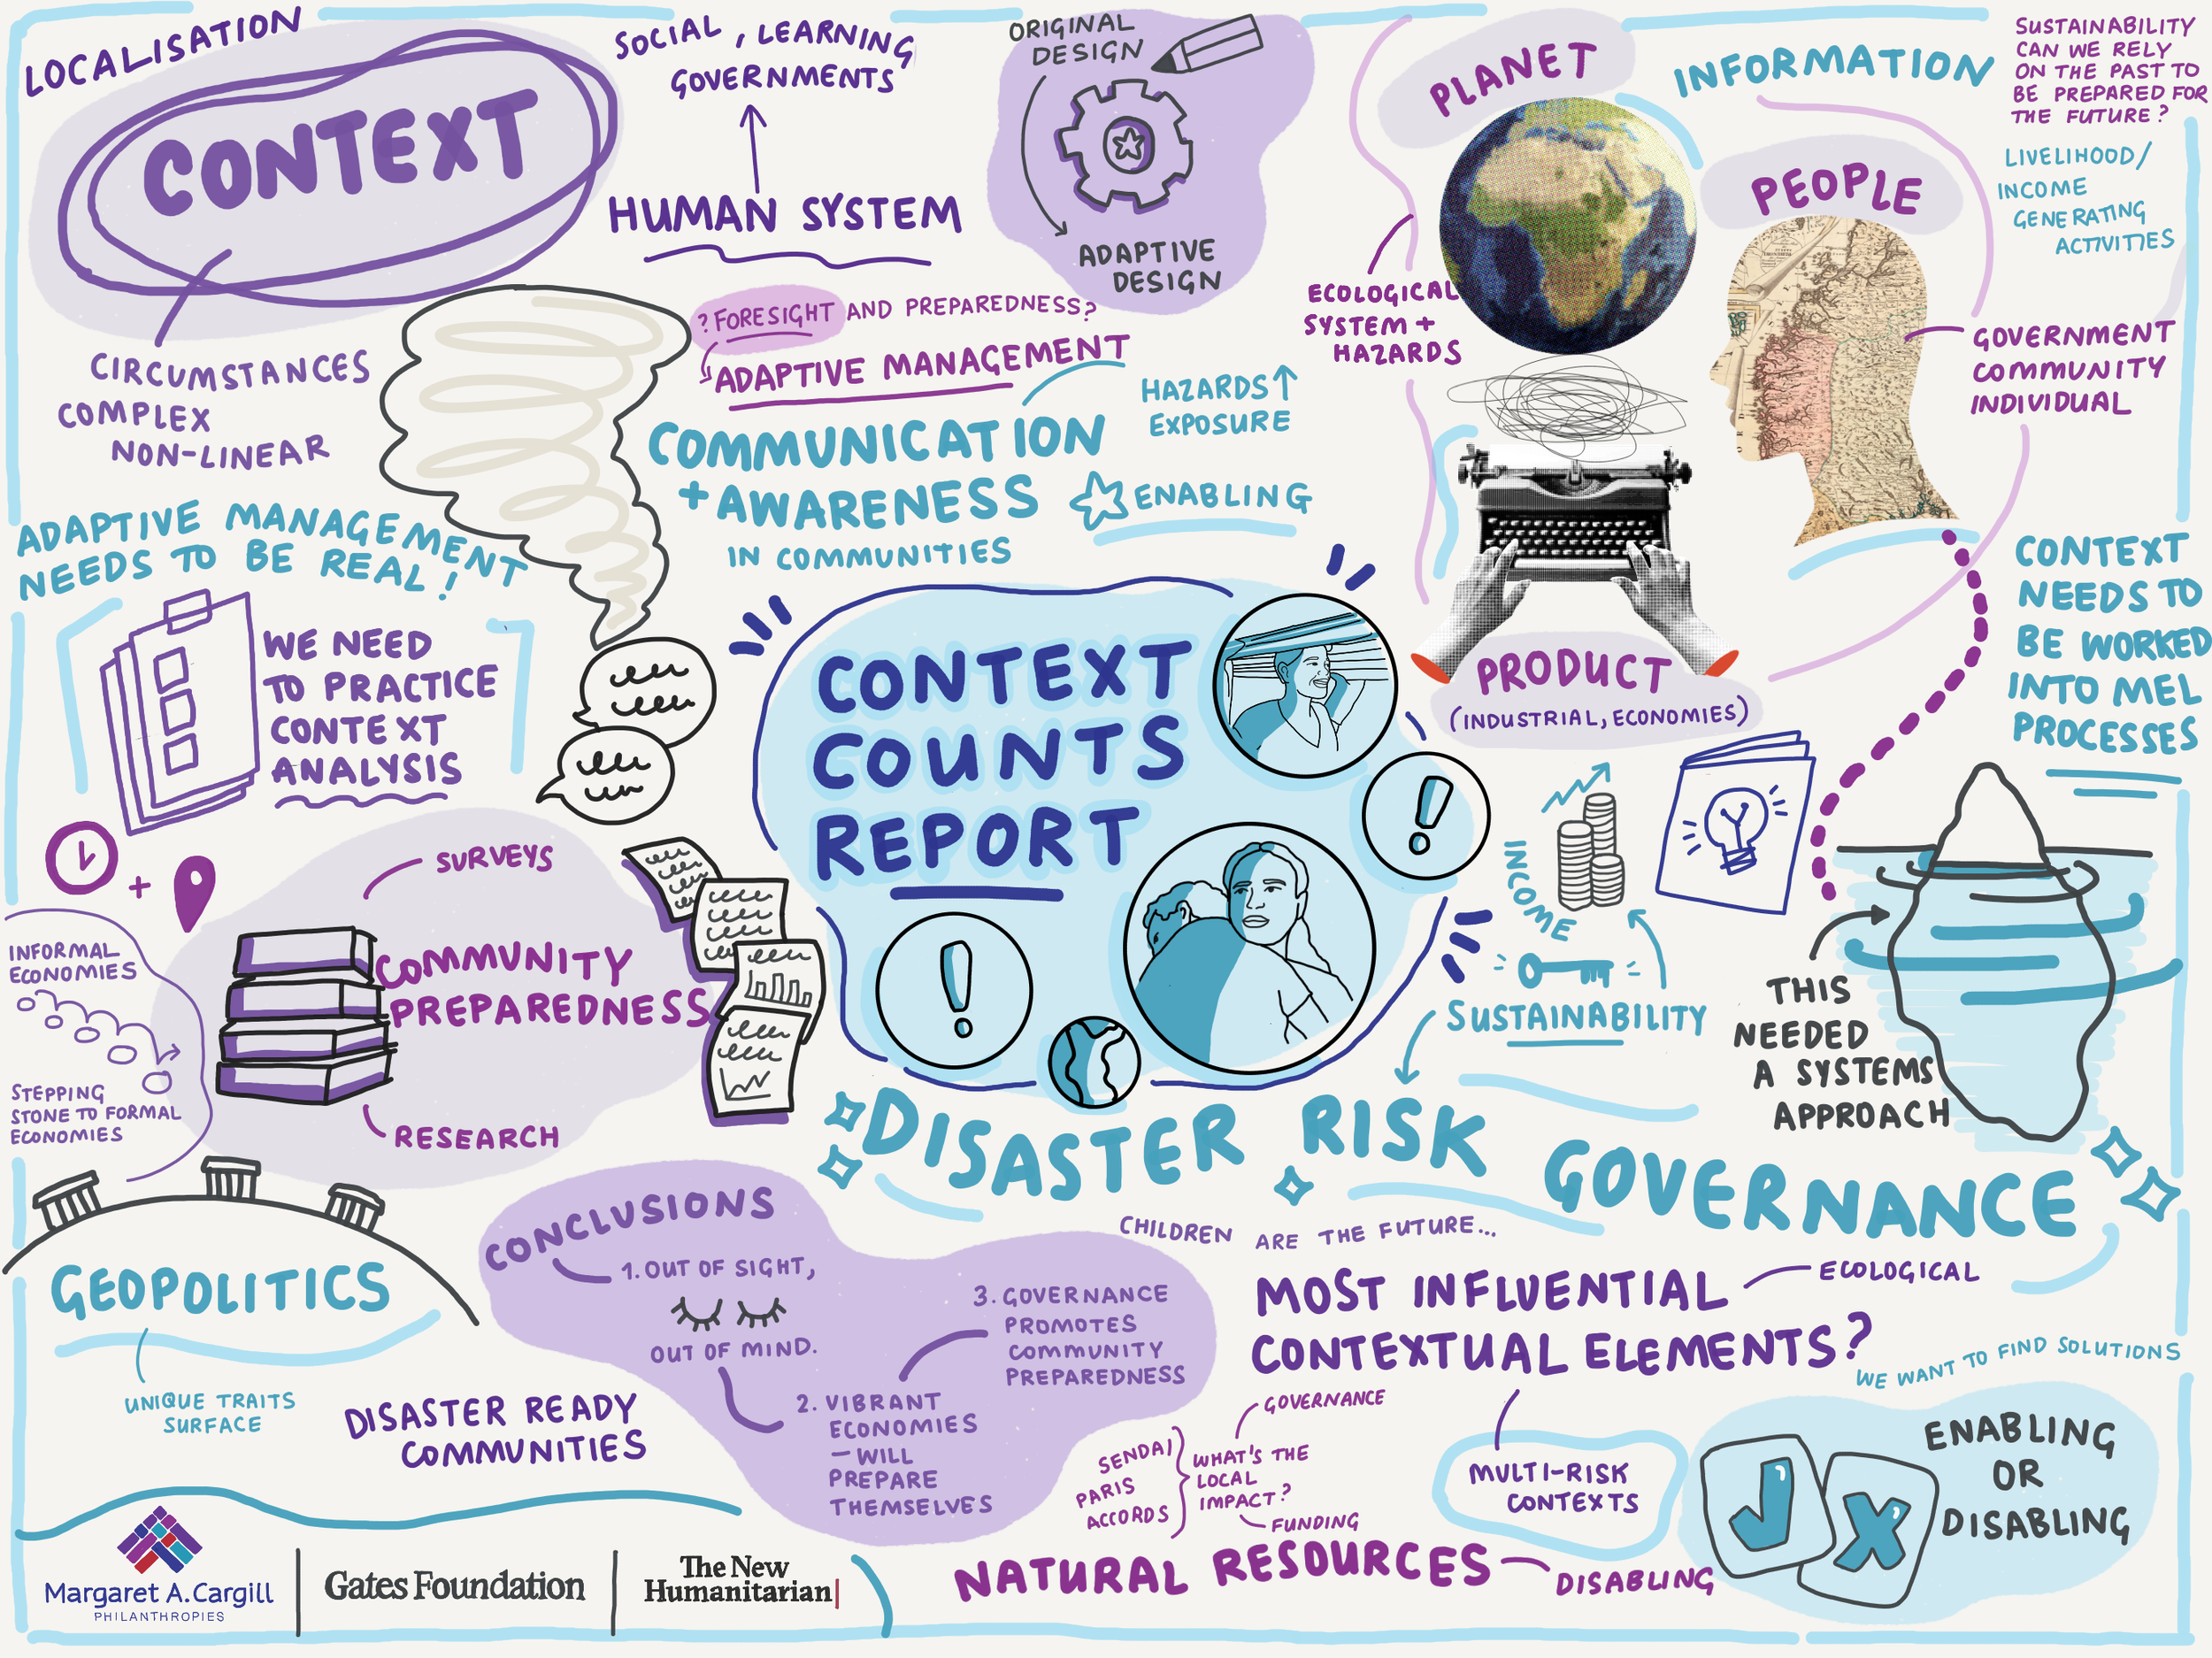 LOCALISATION
CONTEXT
CIRCUMSTANCES
COMPLEX
NON-LINEAR
SOCIAL, LEARNING
GOVERNMENTS
HUMAN SYSTEM
ORIGINAL
DESIGN
ADAPTIVE
DESIGN
?FORESIGHT AND PREPAREDNESS?
ADAPTIVE MANAGEMENT
COMMUNICATION
+ AWARENESS
IN COMMUNITIES
HAZARDS
EXPOSURE
ENABLING
PLANET
ECOLOGICAL
SYSTEM +
HAZARDS
INFORMATION
PEOPLE
SUSTAINABILITY
CAN WE RELY
ON THE PAST TO
BE PREPARED FOR
THE FUTURE?
LIVELIHOOD/
INCOME
GENERATING
ACTIVITIES
GOVERNMENT
COMMUNITY
INDIVIDUAL
PRODUCT
(INDUSTRIAL, ECONOMIES)
CONTEXT
NEEDS TO
BE WORKED
INTO MEL
PROCESSES
ADAPTIVE MANAGEMENT
NEEDS TO BE REAL!
WE NEED
TO PRACTICE
CONTEXT
ANALYSIS
CONTEXT
COUNTS
REPORT
INCOME
SUSTAINABILITY
THIS
NEEDED
A SYSTEMS
APPROACH
+
SURVEYS
COMMUNITY
PREPAREDNESS
RESEARCH
INFORMAL
ECONOMIES
STEPPING
STONE TO FORMAL
ECONOMIES
DISASTER RISK
GOVERNANCE
GEOPOLITICS
UNIQUE TRAITS
SURFACE
DISASTER READY
COMMUNITIES
CONCLUSIONS
1. OUT OF SIGHT,
OUT OF MIND.
2. VIBRANT
ECONOMIES
- WILL
PREPARE
THEMSELVES
3. GOVERNANCE
PROMOTES
COMMUNITY
PREPAREDNESS
CHILDREN ARE THE FUTURE...
MOST INFLUENTIAL
CONTEXTUAL ELEMENTS?
ECOLOGICAL
MULTI-RISK
CONTEXTS
WE WANT TO FIND SOLUTIONS
ENABLING
OR
DISABLING
GOVERNANCE
SENDAI
PARIS
ACCORDS
WHAT'S THE
LOCAL
IMPACT?
FUNDING
NATURAL RESOURCES
DISABLING
Margaret A. Cargill
PHILANTHROPIES
Gates Foundation
The New
Humanitarian